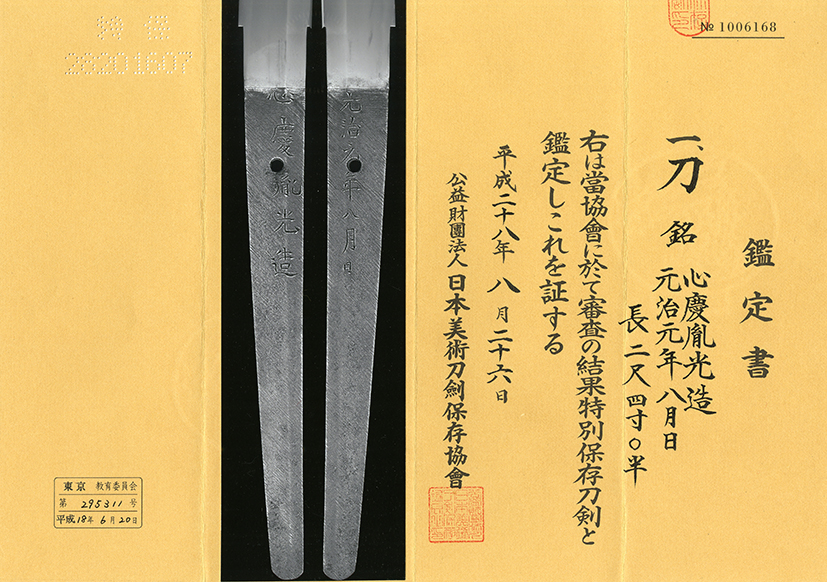 鑑定書
一、刀 銘 心慶胤光造
元治元年八月日
長 二尺四寸〇半
右は當協會に於て審査の結果特別保存刀剣と
鑑定しこれを証する
平成二十八年 八月二十六日
公益財團法人 日本美術刀劍保存協會
№ 1006168
元治元年八月日
心慶胤光造
特保
28201607
東京 教育委員会
第 295311 号
平成18年6月20日